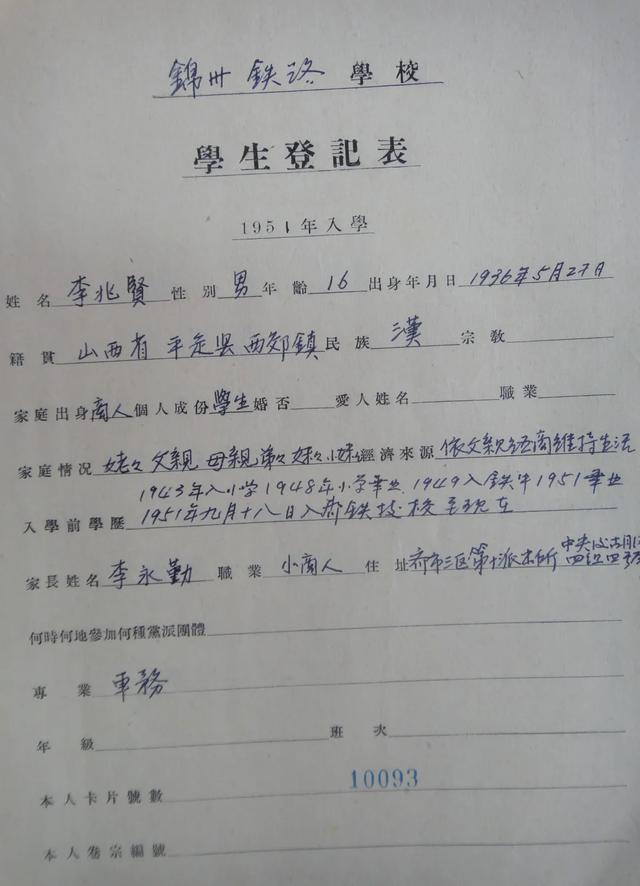 錦州 鉄路 學校
學生登記表
1951年入學
姓名 李兆賢 性別 男 年齡 16 出身年月日 1936年5月27日
籍貫 山西省 平定县 西郊鎮 民族 漢 宗教
家庭出身 商人 個人成份 學生 婚否 愛人姓名 職業
家庭情况 姥々 父親 母親 弟々 妹々 小妹 經濟來源 依父親經商維持生活
1943年入小学 1948年小学畢业 1949入鉄中 1951畢业
入學前學歷 1951年九月十八日入齐鉄技校至現在
家長姓名 李永勤 職業 小商人 住址 齐市三区第十派出所 中央 胡同
四組四號
何時何地參加何種黨派團體
專業 車務
年級 班次
本人卡片號數 10093
本人卷宗編號